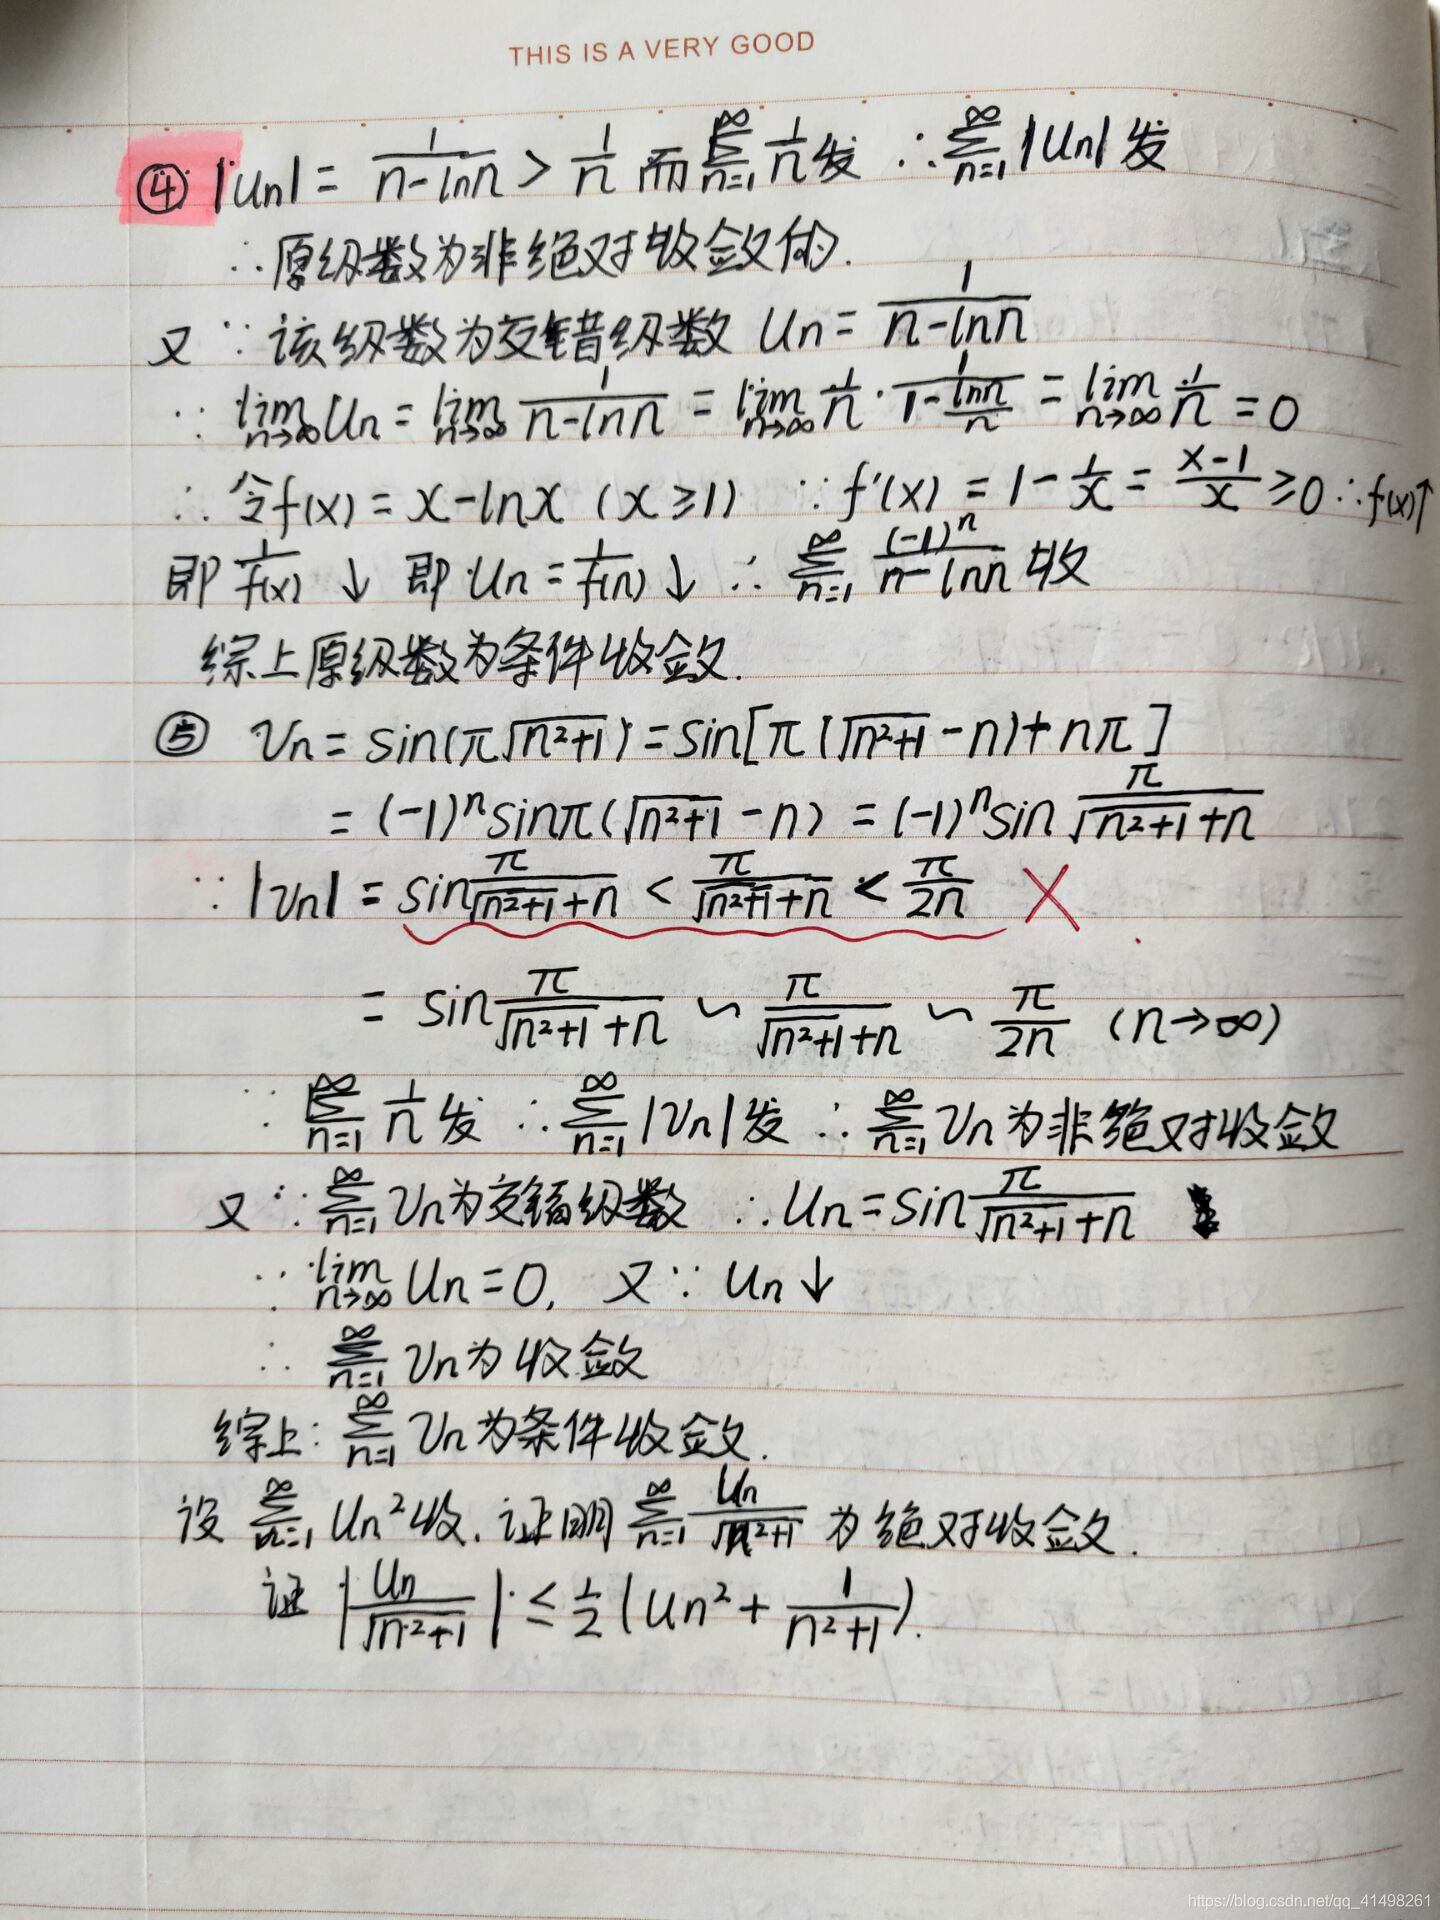 THIS IS A VERY GOOD
④ |Un| = 1/(n-lnn) > 1/n 而 ∑_{n=1}^{∞} 1/n 发 ∴ ∑_{n=1}^{∞} |Un| 发
∴ 原级数为非绝对收敛的.
又 ∵ 该级数为交错级数 Un = 1/(n-lnn)
∵ lim_{n→∞} Un = lim_{n→∞} 1/(n-lnn) = lim_{n→∞} 1/n · 1/(1-lnn/n) = lim_{n→∞} 1/n = 0
∴ 令f(x) = x-lnx (x≥1) ∵ f'(x) = 1-1/x = (x-1)/x ≥0 ∴ f(x)↑
即 1/f(x) ↓ 即 Un = 1/f(n) ↓ ∴ ∑_{n=1}^{∞} (-1)^n/(n-lnn) 收
综上原级数为条件收敛.
⑤ Vn = sin(π√(n²+1)) = sin[π(√(n²+1)-n)+nπ]
= (-1)^n sinπ(√(n²+1)-n) = (-1)^n sin π/(√(n²+1)+n)
∵ |Vn| = sin π/(√(n²+1)+n) < π/(√(n²+1)+n) < π/2n ×
= sin π/(√(n²+1)+n) ∽ π/(√(n²+1)+n) ∽ π/2n (n→∞)
∵ ∑_{n=1}^{∞} 1/n 发 ∴ ∑_{n=1}^{∞} |Vn| 发 ∴ ∑_{n=1}^{∞} Vn 为非绝对收敛
又 ∵ ∑_{n=1}^{∞} Vn 为交错级数 ∴ Un = sin π/(√(n²+1)+n)
∵ lim_{n→∞} Un = 0, 又 ∵ Un ↓
∴ ∑_{n=1}^{∞} Vn 为收敛
综上: ∑_{n=1}^{∞} Vn 为条件收敛.
设 ∑_{n=1}^{∞} Un² 收. 证明 ∑_{n=1}^{∞} Un/√(n²+1) 为绝对收敛.
证 |Un/√(n²+1)| ≤ 1/2 (Un² + 1/(n²+1)).
https://blog.csdn.net/qq_41498261